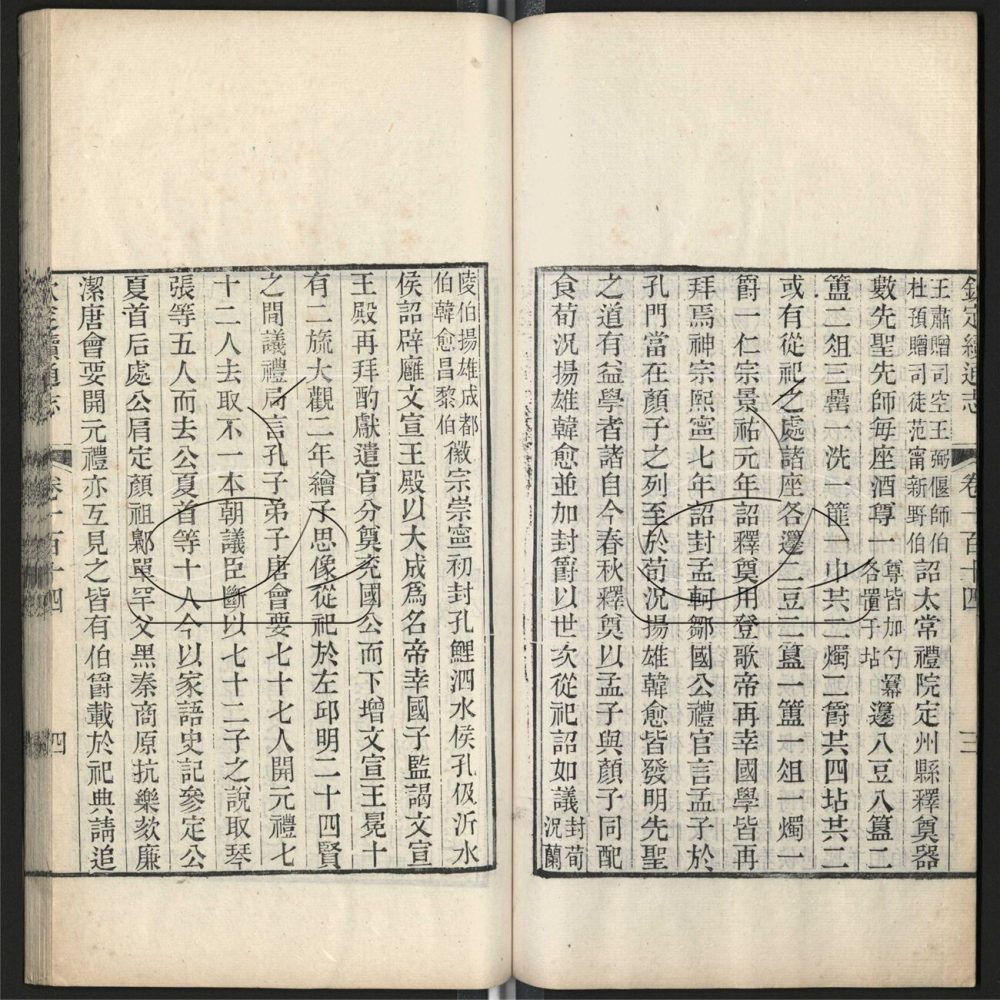 欽定續通志 卷一百十四 三
王肅贈司空王弼偃師伯杜預贈司徒范甯新野伯詔太常禮院定州縣釋奠器
數先聖先師每座酒尊一尊皆加勺冪各置于坫籩八豆八簋二
簠二俎三罍一洗一篚一巾共二燭二爵共四坫共二
或有從祀之處諸座各籩二豆二簋一簠一俎一燭一
爵一仁宗景祐元年詔釋奠用登歌帝再幸國學皆再
拜焉神宗熙寧七年詔封孟軻鄒國公禮官言孟子於
孔門當在顏子之列至於荀況揚雄韓愈皆發明先聖
之道有益學者諸自今春秋釋奠以孟子與顏子同配
食荀況揚雄韓愈並加封爵以世次從祀詔如議封荀況蘭
陵伯揚雄成都伯韓愈昌黎伯徽宗崇寧初封孔鯉泗水侯孔伋沂水
侯詔辟廱文宣王殿以大成為名帝幸國子監謁文宣
王殿再拜酌獻遣官分奠兗國公而下增文宣王冕十
有二旒大觀二年繪子思像從祀於左邱明二十四賢
之間議禮局言孔子弟子唐會要七十七人開元禮七
十二人去取不一本朝議臣斷以七十二子之說取琴
張等五人而去公夏首等十人今以家語史記參定公
夏首后處公肩定顏祖鄡單罕父黑秦商原抗樂欬廉
潔唐會要開元禮亦互見之皆有伯爵載於祀典請追
欽定續通志 卷一百十四 四